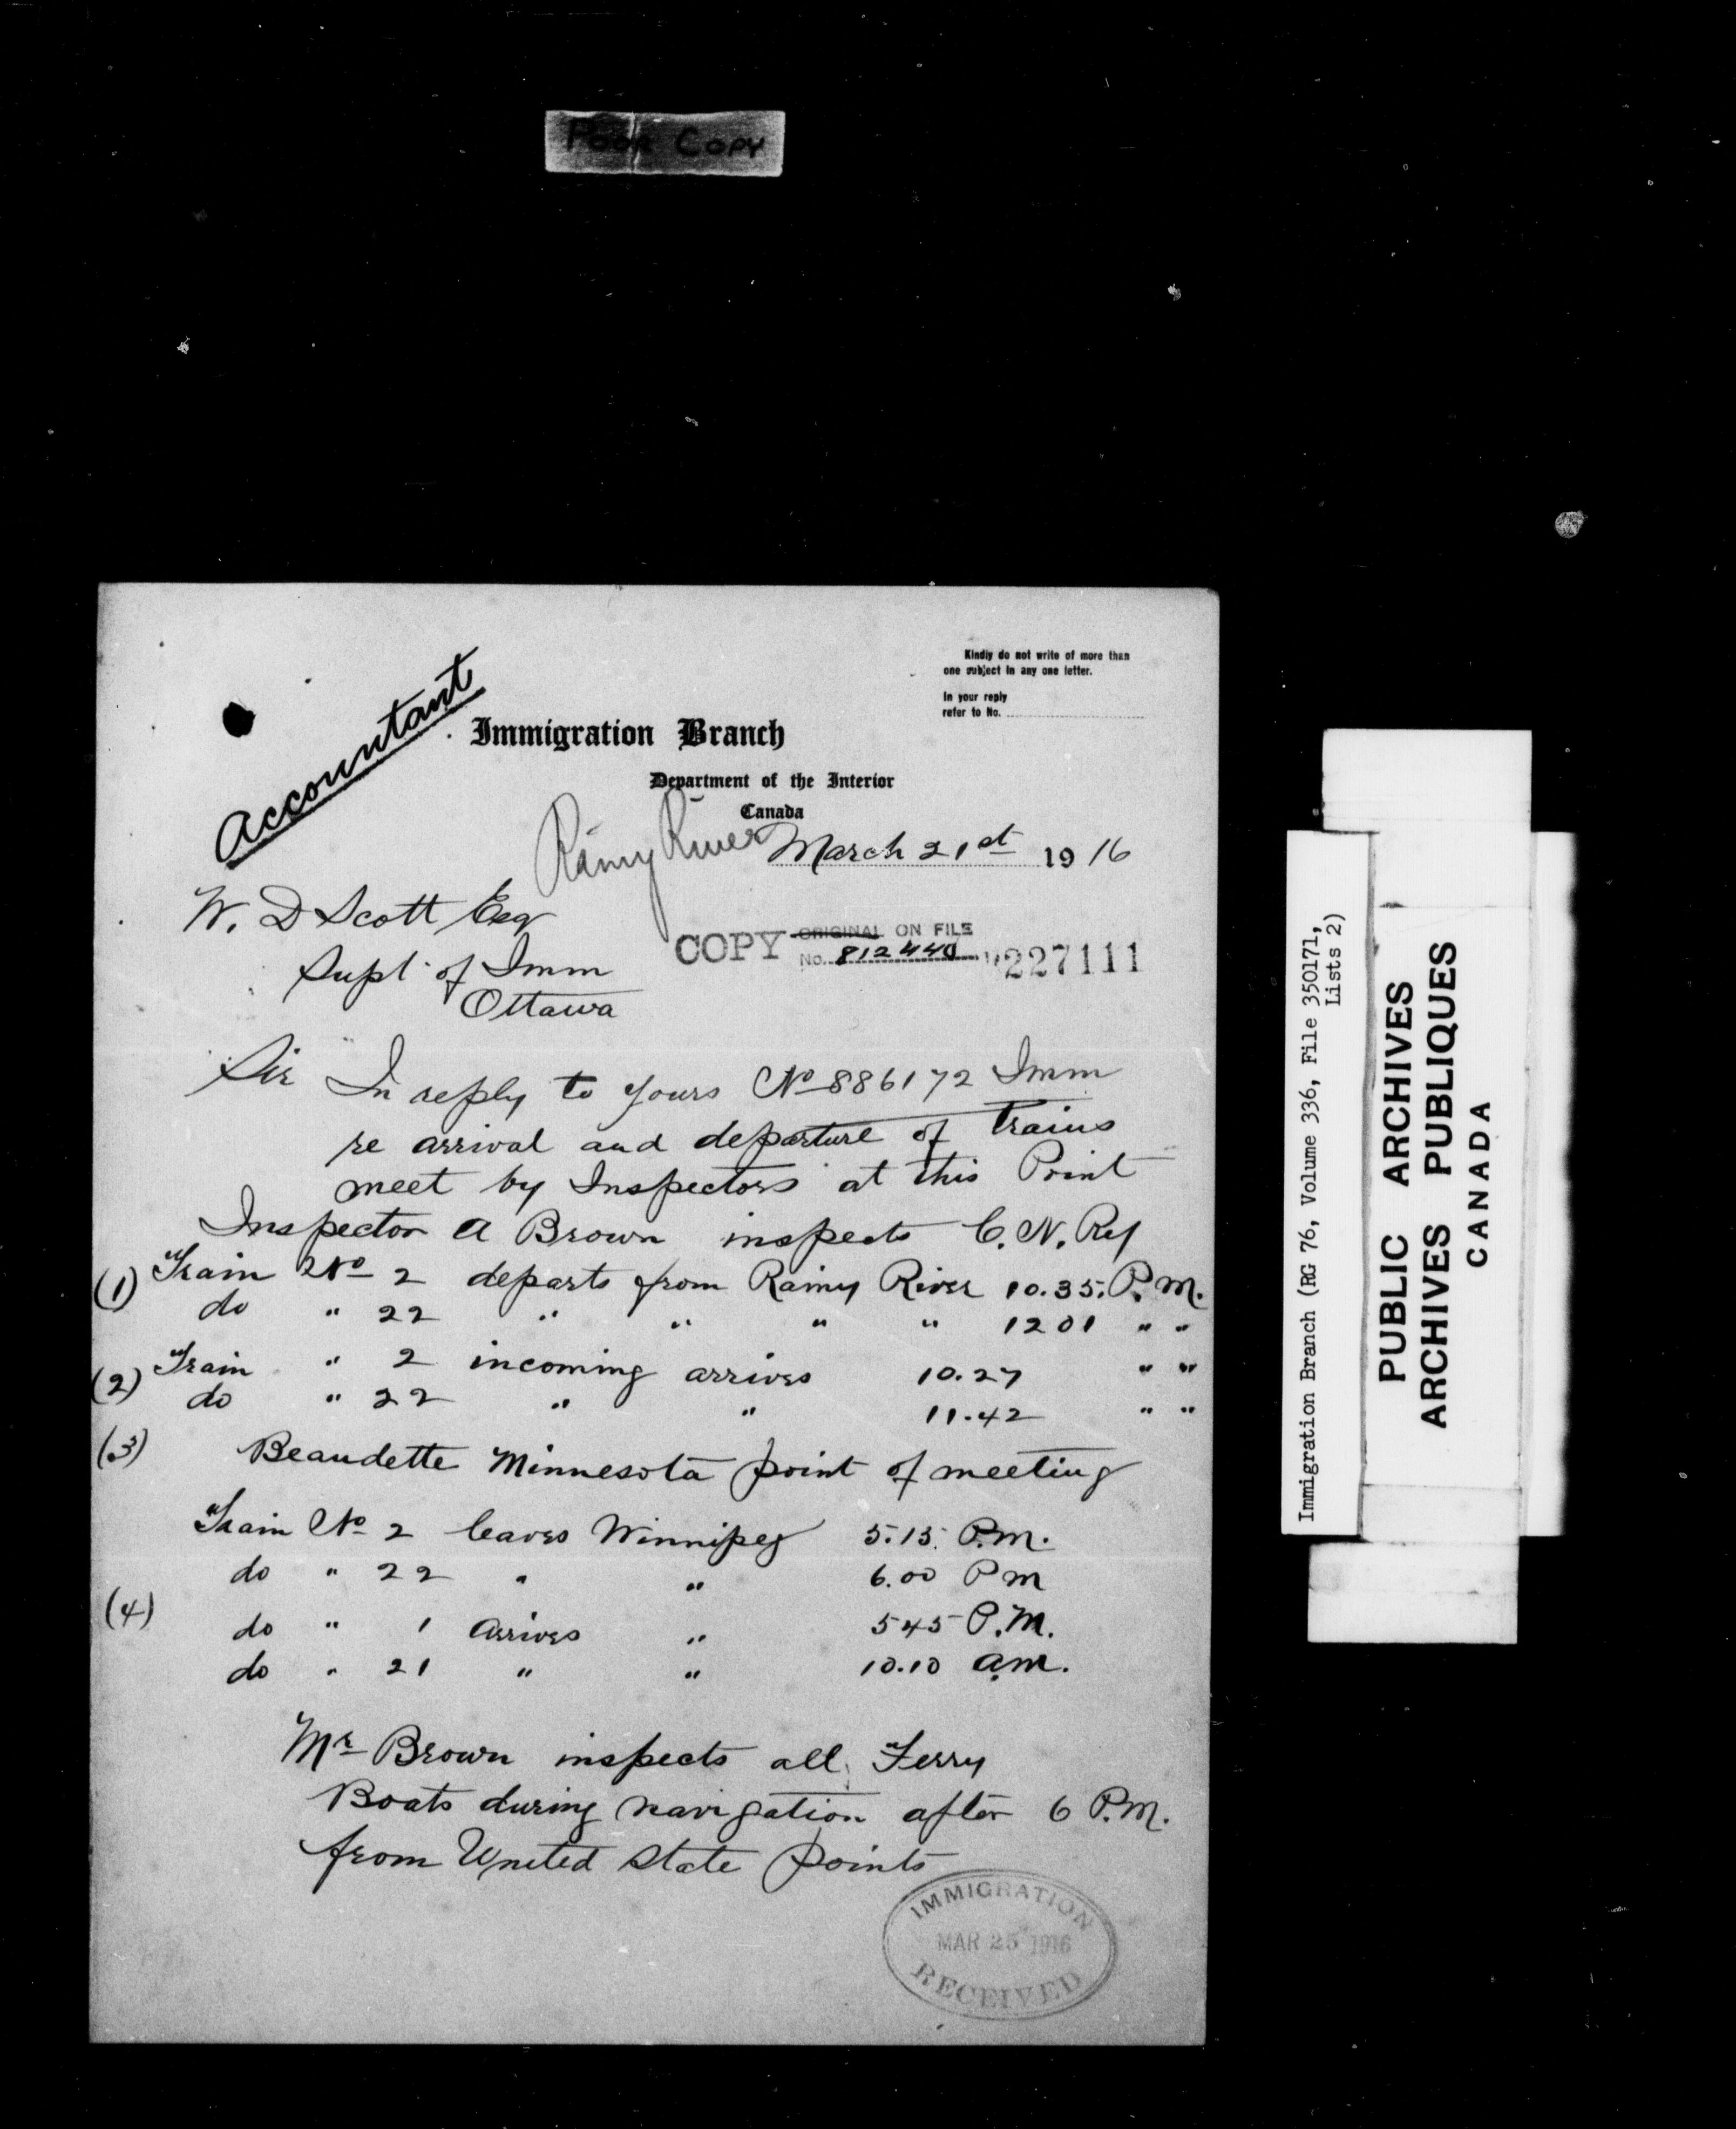 Poor Copy
Kindly do not write of more than
one subject in any one letter.
In your reply
refer to No.
Accountant
Immigration Branch
Department of the Interior
Canada
Rainy River March 21st 1916
W. D Scott Esq
COPY ORIGINAL ON FILE
No. 812440 227111
Supt of Imm
Ottawa
Sir In reply to yours No 886172 Imm
re arrival and departure of Trains
meet by Inspectors at this Point
Inspector A Brown inspects C. N. Ry
(1) Train No 2 departs from Rainy River 10.35. P.M.
do " 22 " " " " 1201 " "
(2) Train " 2 incoming arrives 10.27 " "
do " 22 " " 11.42 " "
(3) Beaudette Minnesota point of meeting
Train No 2 leaves Winnipeg 5.15. P.M.
do " 22 " " 6.00 P M
(4) do " 1 Arrives " 545 P.M.
do " 21 " " 10.10 a.m.
Mr Brown inspects all Ferry
Boats during navigation after 6 P.M.
from United State points
IMMIGRATION
MAR 25 1916
RECEIVED
Immigration Branch (RG 76, Volume 336, File 350171,
Lists 2)
PUBLIC ARCHIVES
ARCHIVES PUBLIQUES
CANADA